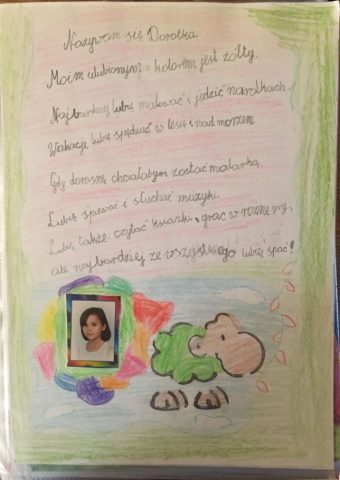 Nazywam się Dorotka.
Moim ulubionym kolorem jest żółty.
Najbardziej lubię malować i jeździć na rolkach.
Wakacje lubię spędzać w lesie i nad morzem.
Gdy dorosnę chciałabym zostać malarką.
Lubię śpiewać i słuchać muzyki.
Lubię także czytać książki, grać w różne gry,
ale najbardziej ze wszystkiego lubię spać!